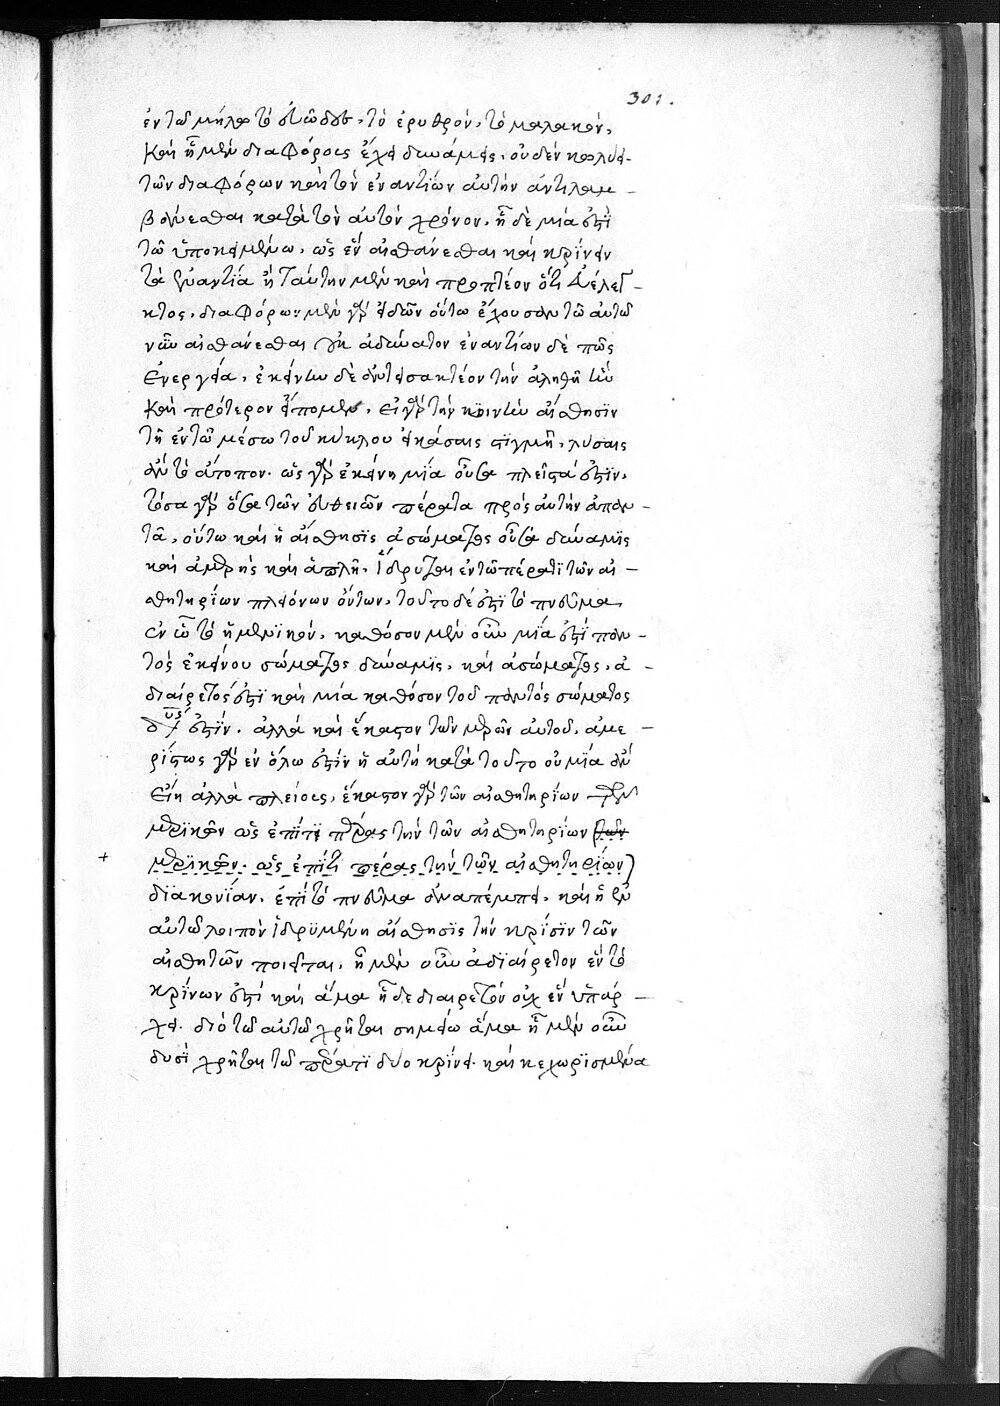 301.
ἐν τῷ μήλῳ τὸ εὐῶδες, τὸ ἐρυθρόν, τὸ μαλακόν,
καὶ ᾗ μὲν διαφόροις ἔχει δυνάμεις, οὐδὲν κωλύει
τῶν διαφόρων καὶ τῶν ἐναντίων αὐτὴν ἀντιλαμ-
βάνεσθαι κατὰ τὸν αὐτὸν χρόνον, ᾗ δὲ μία ἐστὶ
τῷ ὑποκειμένῳ, ὡς ἓν αἰσθάνεσθαι καὶ κρίνειν
τὰ ἐναντία ἢ ταύτην μὲν καὶ προπτέον ὅτι ἀνέλεγ-
κτος, διαφόρων μὲν γὰρ εἰδῶν οὕτω ἔχουσαν τῷ αὐτῷ
νῦν αἰσθάνεσθαι οὐκ ἀδύνατον ἐναντίων δὲ πῶς
ἐνεργείᾳ, ἐκείνην δὲ ἀντεισακτέον τὴν ἀληθῆ ἣν
καὶ πρότερον εἴπομεν, εἰ γὰρ τὴν κοινὴν αἴσθησιν
τῇ ἐν τῷ μέσῳ τοῦ κύκλου εἰκάσαις στιγμῇ, λύσαις
ἂν τὸ ἄτοπον. ὡς γὰρ ἐκείνη μία οὖσα πλεῖστά ἐστιν,
τόσα γὰρ ὅσα τῶν εὐθειῶν πέρατα πρὸς αὐτὴν ἀπαν-
τᾷ, οὕτω καὶ ἡ αἴσθησις ἀσώματος οὖσα δύναμις
καὶ ἀμερὴς καὶ ἁπλῆ, ἵδρυται ἐν τῷ πέρατι τῶν αἰ-
σθητηρίων πλειόνων ὄντων, τοῦτο δέ ἐστι τὸ πνεῦμα,
ἐν ᾧ τὸ ἡγεμονικόν, καθόσον μὲν οὖν μία ἐστὶ παν-
τὸς ἐκείνου σώματος δύναμις, καὶ ἀσώματος, ἀ-
διαίρετός ἐστι καὶ μία καθόσον τοῦ παντὸς σώματος
δύναμίς ἐστιν. ἀλλὰ καὶ ἕκαστον τῶν μερῶν αὐτοῦ, ἀμε-
ρίστως γὰρ ἐν ὅλῳ ἐστὶν ἡ αὐτὴ κατὰ τοῦτο οὐ μία ἂν
εἴη ἀλλὰ πλείους, ἕκαστον γὰρ τῶν αἰσθητηρίων τῶν
μερικῶν ὡς ἐπί τι πέρας τὴν τῶν αἰσθητηρίων (τῶν
μερικῶν. ὡς ἐπί τι πέρας τὴν τῶν αἰσθητηρίων)
διακονίαν, ἐπὶ τὸ πνεῦμα ἀναπέμπει, καὶ ἡ ἐν
αὐτῷ λοιπὸν ἱδρυμένη αἴσθησις τὴν κρίσιν τῶν
αἰσθητῶν ποιεῖται, ᾗ μὲν οὖν ἀδιαίρετον ἓν τὸ
κρῖνον ἐστὶ καὶ ἅμα ᾗ δὲ διαιρετὸν οὐχ ἓν ὑπάρ-
χει. διὸ τῷ αὐτῷ χρῆται σημείῳ ἅμα ᾗ μὲν οὖν
δυσὶ χρῆται τῷ πέρατι δύο κρίνει καὶ κεχωρισμένα